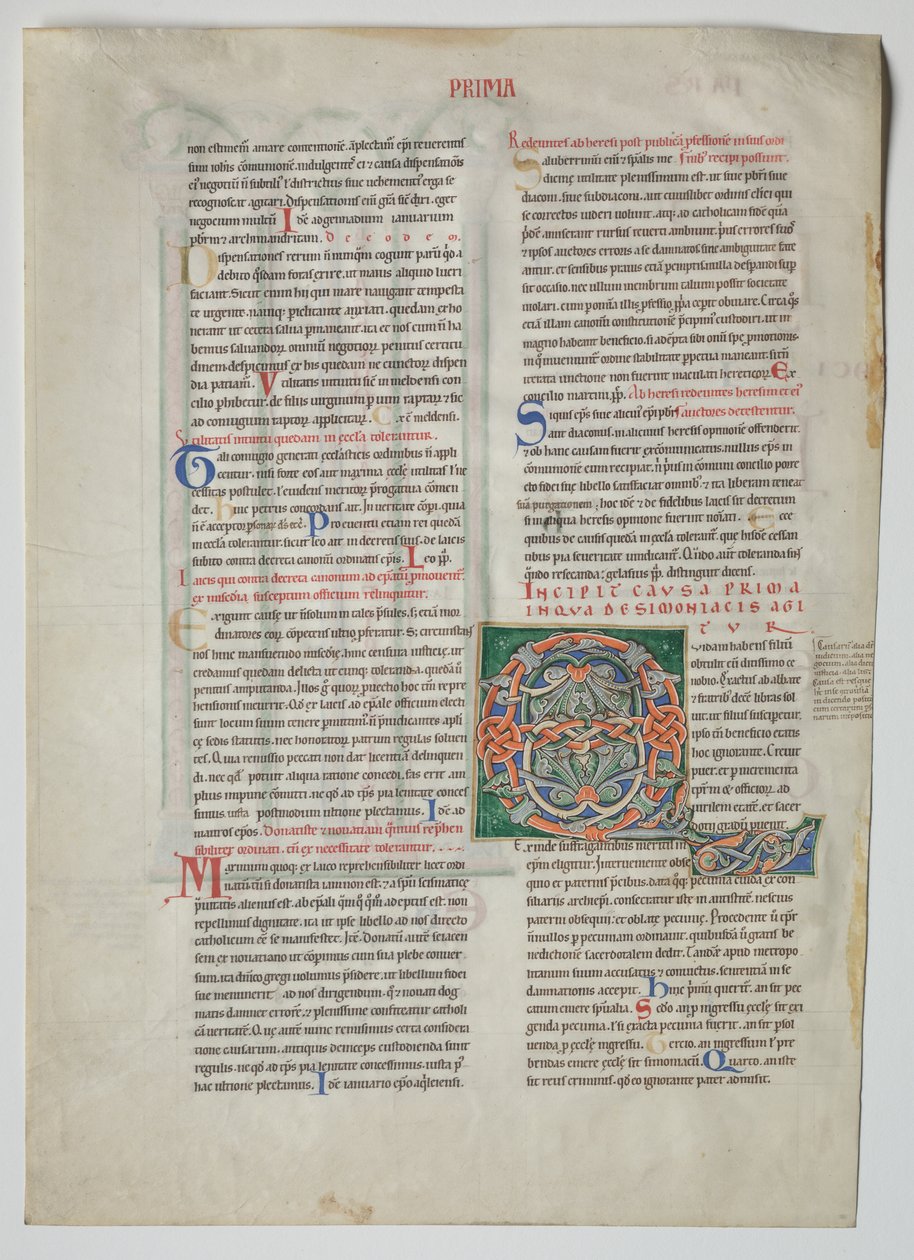 PRIMA
non estimem amare contentione aplectam epi reuerentis
recognoscat agitari. Dispensationis eni gra sic dicr. eget
negocium multu Ide ad gennadium ianuarium
pbrm & archimandritam. De eodem.
Dispensationes rerum n nunqm cogunt paru qo a
debito qsdam foras exire. ut maius aliquid lucri
faciant. Sicut enim hij qui mare nauigant tempesta
te urgente. naui q periclitante anxiati. quedam exho
nerant ut cetera salua permaneant. ita et nos cum n ha
bemus saluandorum omniu negotiorum penitus certitu
dinem. despicimus ex his quedam ne cunctorum dispen
dia patiam. Vtilitatis intuitu sic in meldensi con
cilio phibetur. de filiis uirginum p uim raptarum & sic
ad coniugium raptorum applicitarum. C. x e meldensi.
Vtilitatis intuitu quedam in eccla tolerantur.
Tali coniugio generati ecclasticis ordinibus n appli
centur. nisi forte eos aut maxima eccle utilitas l ne
cessitas postulet. l euidens meritorum prerogatiua comen
det. hinc petrus concordans ait. In ueritate coperi. quia
n e acceptor psonarum ds etc. Pro euentu etiam rei queda
in eccla tolerantur. sicut leo ait in decretis suis. de laicis
subito contra decreta canonu ordinatis epis. Leo pp.
Laicis qui contra decreta canonum ad epatu pmouentur.
ex misedia susceptum officium relinquitur.
Exigunt cause ut n solum in tales psules. s; etia in or
dinatores eorum copetens ultio pferatur. S; circunstant
nos hinc mansuetudo misedie. hinc censura iusticie. ut
credamus quedam delicta utcunq; toleranda. queda u
penitus amputanda.
hensionis incurrit. Qd ex laicis ad epale officium electi
sunt locum suum tenere pmittam. n piudicantes apli
ce sedis statutis. nec honorator patrum regulas soluen
tes. Q uia remissio peccati non dat licentia delinquen
di. nec qd potuit aliqua ratione concedi. fas erit am
plius impune comitti. ne qd ad tps pia lenitate conces
simus. iusta postmodum ultione plectamus. Ide ad
mauros epos. Donatiste & nouatiani quamuis rephen
sibiliter ordinati. tn ex necessitate tolerantur.
Maximum quoq; ex laico reprehensibiliter licet ordi
natu. tn si donatista iam non est. & a spu scismatice
prauitatis alienus est. ab epali qm quoqo mo adeptus est. non
repellimus dignitate. ita ut ipse libello ad nos directo
catholicum ee se manifestet. Ite. Donatu aute seiacen
sem ex nouatiano ut coperimus cum sua plebe conuer
sum. ita dnico gregi uolumus psidere. ut libellum fidei
sue meminerit ad nos dirigendum. q & nouati dog
matis damnet errore. & plenissime confiteatur catholi
ca ueritate. Q ue aute nunc remisimus certa considera
tione causarum. antiquis deinceps custodienda sunt
regulis. ne qd ad tps pia lenitate concessimus. iusta p
hac ultione plectamus. Ide ianuario epo aqleiensi.
Redeuntes ab heresi post publica pfessione in suis ordi
nib; recipi possunt.
Saluberrimu eni & spalis me
dicine utilitate plenissimum est. ut siue pbri siue
diaconi. siue subdiaconi. aut cuiuslibet ordinis clerici qui
se correctos uideri uolunt. atq; ad catholicam fide qua
pde amiserant rursus reuerti ambiunt. pus errores suos
& ipsos auctores erroris a se damnatos sine ambiguitate fate
antur. ut sensibus prauis etia peremptis nulla desperandi sup
sit occasio. nec ullum membrum talium possit societate
uiolari. cum p omnia illis pfessio ppa ceperit obuiare. Circa qs
etia illam canonu constitutione pcipimus custodiri. ut in
magno habeant beneficio. si adepta sibi omi spe pmotionis.
in q inueniunt ordine stabilitate ppetua maneant. si tn
iterata unctione non fuerint maculati hereticorum. Ex
concilio martini pp. Ab heresi redeuntes heresim et ei
auctores detestentur.
Siquis eps siue alicui epi pbr
aut diaconus. in alicuius heresis opinione offenderit.
& ob hanc causam fuerit excomunicatus. nullus eps in
comunione eum recipiat. n pus in comuni concilio porre
cto fidei sue libello satisfaciat omnib; & ita liberam teneat
sua purgationem. hoc ide & de fidelibus laicis sit decretum
si in aliqua heresis opinione fuerint noiati. Ecce
quibus de causis queda in eccla tolerantur. que hisde cessan
tibus pia seueritate uindicant. Quando aut toleranda sint
quando resecanda. gelasius pp. distinguit dicens.
INCIPIT CAVSA PRIMA
INQVA DE SIMONIACIS AGI
TVR
Quidam habens filiu
obtulit eu ditissimo ce
nobio. Exactus ab abbate
& fratrib; dece libras sol
uit. ut filius susciperetur.
ipso tn beneficio etatis
hoc ignorante. Creuit
puer. et p incrementa
tpr m & officiorum. ad
uirilem etate. et sacer
dotij gradu puenit.
Exinde suffragantibus meritis in
epm eligitur. Interueniente obse
quio et paternis pcibus. data qq; pecunia cuida ex con
siliariis archiepi. consecratur iste in antistite. nescius
paterni obsequii. et oblate pecunie. Procedente u tpr
n nullos p pecuniam ordinauit. quibusda u gratis be
nedictione sacerdotalem dedit. Tande apud metropo
litanum suum accusatus & conuictus. sententia in se
damnationis accepit. hinc primu querit. an sit pec
catum emere spualia. Scdo. an p ingressu eccle sit exi
genda pecunia. l si exacta pecunia fuerit. an sit psol
uenda p eccle ingressu. Tercio. an ingressum l pre
bendas emere eccle sit simoniacu. Quarto. an iste
sit reus criminis. qd eo ignorante pater admisit.